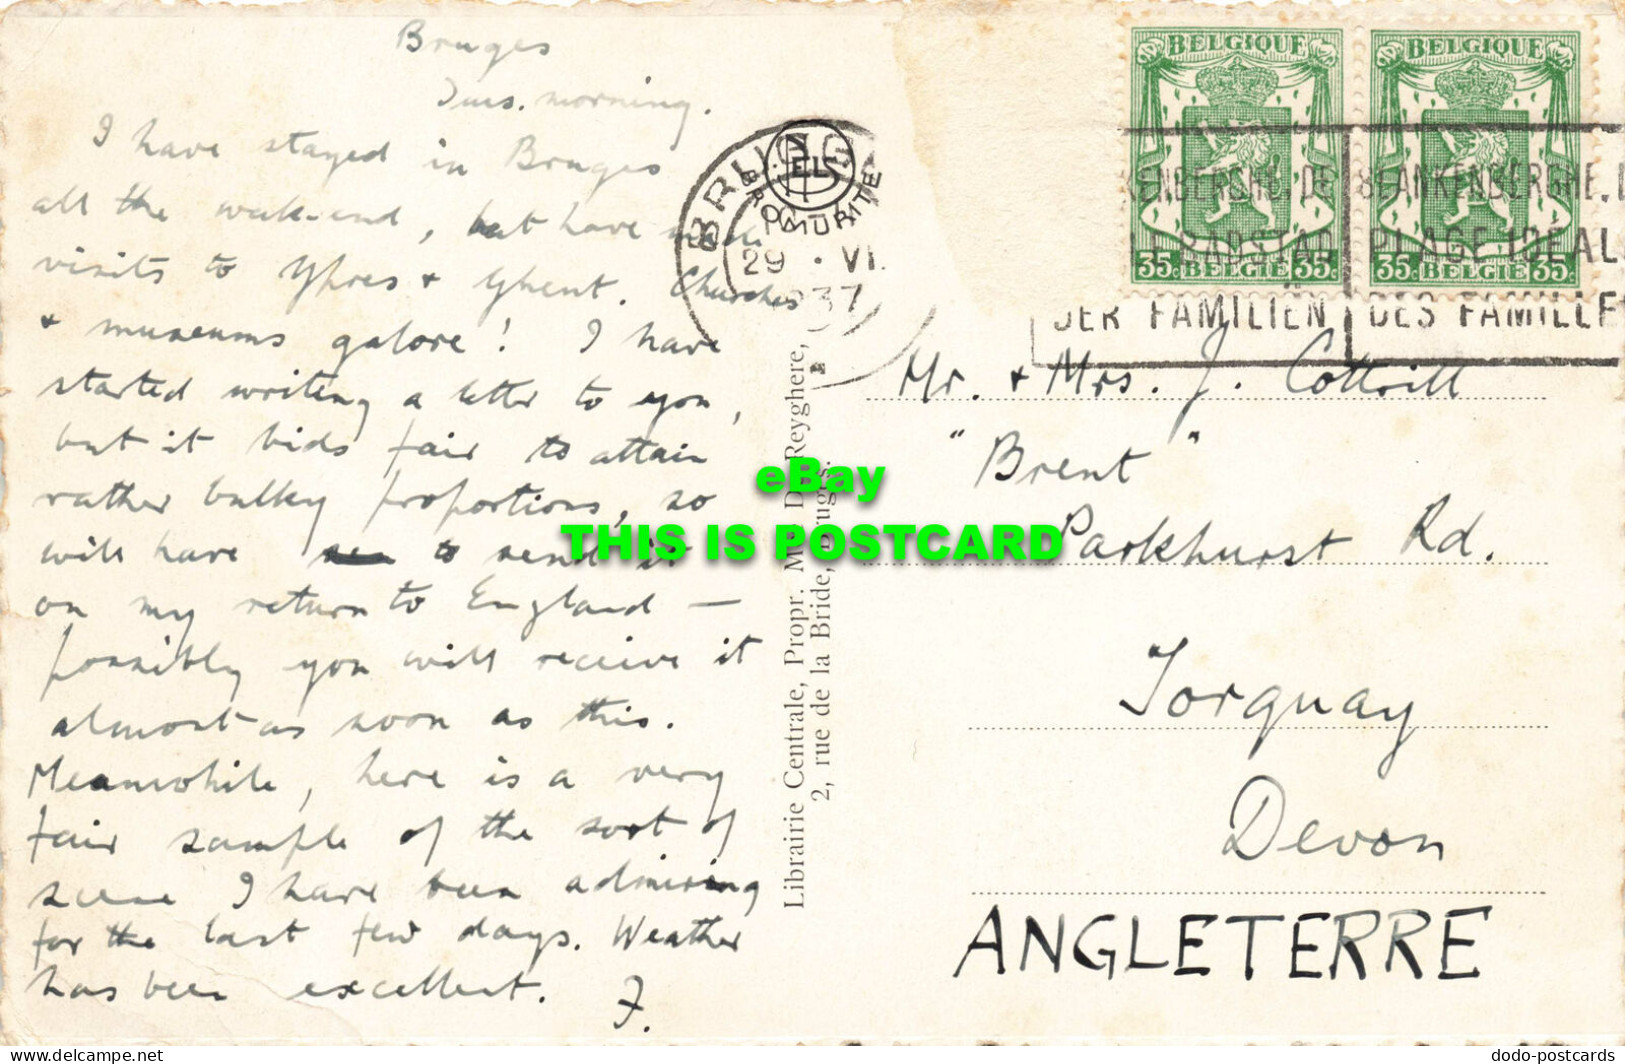 Bruges
Tues. morning.
I have stayed in Bruges
all the week-end, but have made
visits to Ypres + Ghent. Churches
+ museums galore! I have
started writing a letter to you,
but it bids fair to attain
rather bulky proportions, so
will have to send it
on my return to England –
possibly you will receive it
almost as soon as this.
Meanwhile, here is a very
fair sample of the sort of
scene I have been admiring
for the last few days. Weather
has been excellent. F.
BRUGGE
29 · VI.
1937
ELS
BROMURITE
Librairie Centrale, Propr. M. De Reyghere,
2, rue de la Bride, Bruges.
BELGIQUE
35c BELGIE 35c
BELGIQUE
35c BELGIE 35c
KENBERGHE. DE
LE BADSTAD
DER FAMILIËN
BLANKENBERGHE.
PLAGE IDEAL
DES FAMILLE
Mr. + Mrs. J. Cottrill
"Brent"
Parkhurst Rd.
Torquay
Devon
ANGLETERRE
eBay
THIS IS POSTCARD
delcampe.net
dodo-postcards